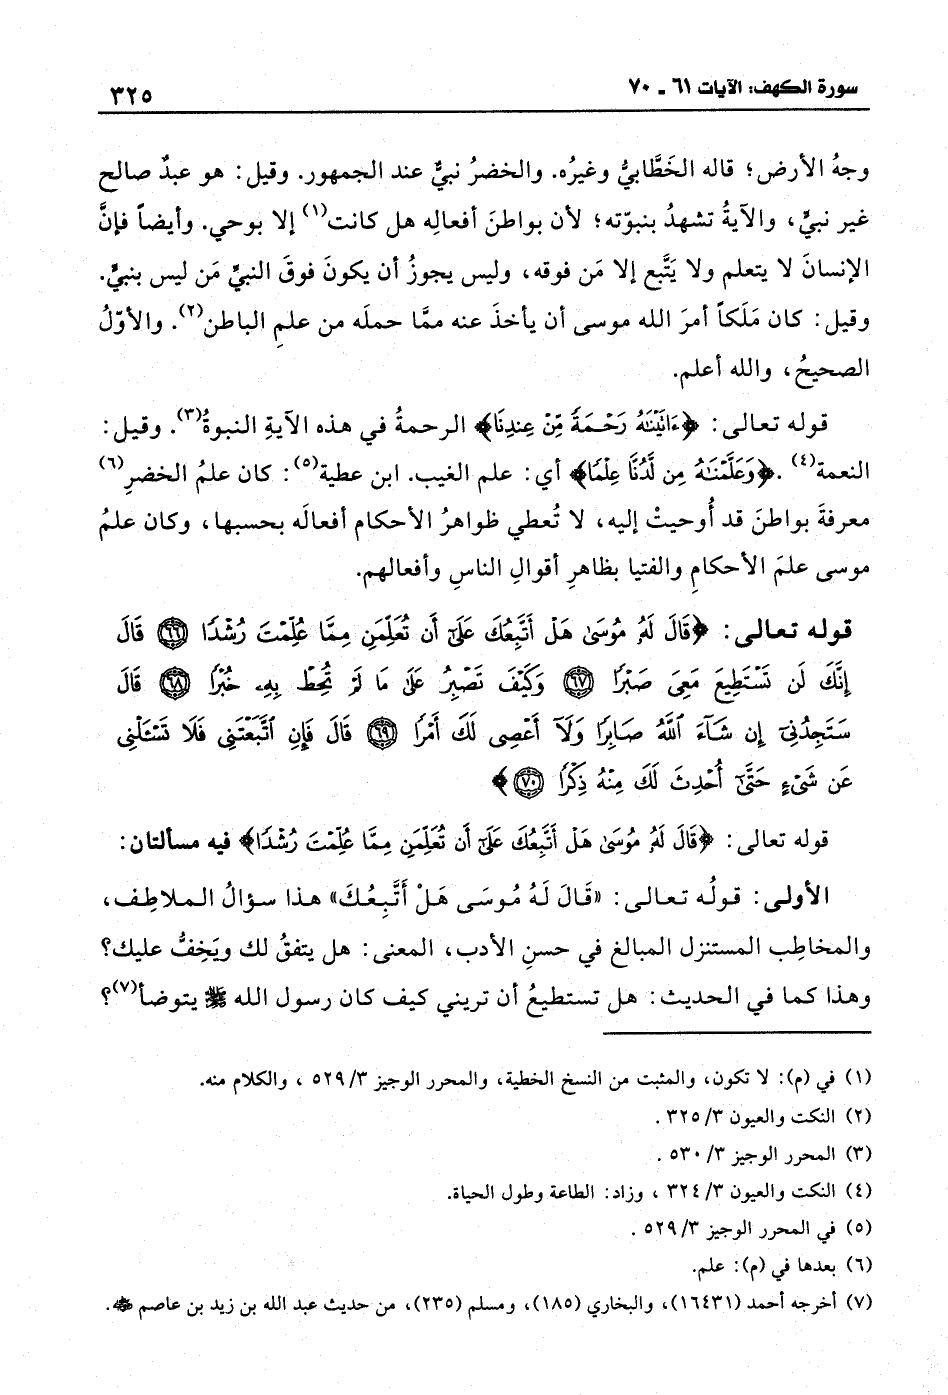 سورة الكهف: الآيات ٦١ ـ ٧٠
٣٢٥
وجهُ الأرض؛ قاله الخَطَّابيُّ وغيرُه. والخضرُ نبيٌّ عند الجمهور. وقيل: هو عبدٌ صالح
غير نبيٍّ، والآيةُ تشهدُ بنبوّته؛ لأن بواطنَ أفعالِه هل كانت(١) إلا بوحي. وأيضاً فإنَّ
الإنسانَ لا يتعلم ولا يَتَّبع إلا مَن فوقه، وليس يجوزُ أن يكونَ فوقَ النبيِّ مَن ليس بنبيٍّ.
وقيل: كان مَلَكاً أمرَ الله موسى أن يأخذَ عنه ممَّا حملَه من علمِ الباطن(٢). والأوّلُ
الصحيحُ، والله أعلم.
قوله تعالى: ﴿ءَاتَيْنَٰهُ رَحْمَةً مِّنْ عِندِنَا﴾ الرحمةُ في هذه الآيةِ النبوةُ(٣). وقيل:
النعمة(٤). ﴿وَعَلَّمْنَٰهُ مِن لَّدُنَّا عِلْمًا﴾ أي: علم الغيب. ابن عطية(٥): كان علمُ الخضرِ(٦)
معرفةَ بواطنَ قد أُوحيتْ إليه، لا تُعطي ظواهرُ الأحكام أفعالَه بحسبها، وكان علمُ
موسى علمَ الأحكامِ والفتيا بظاهرِ أقوالِ الناسِ وأفعالهم.
قوله تعالى: ﴿قَالَ لَهُۥ مُوسَىٰ هَلْ أَتَّبِعُكَ عَلَىٰٓ أَن تُعَلِّمَنِ مِمَّا عُلِّمْتَ رُشْدًا ٦٦ قَالَ
إِنَّكَ لَن تَسْتَطِيعَ مَعِىَ صَبْرًا ٦٧ وَكَيْفَ تَصْبِرُ عَلَىٰ مَا لَمْ تُحِطْ بِهِۦ خُبْرًا ٦٨ قَالَ
سَتَجِدُنِىٓ إِن شَآءَ ٱللَّهُ صَابِرًا وَلَآ أَعْصِى لَكَ أَمْرًا ٦٩ قَالَ فَإِنِ ٱتَّبَعْتَنِى فَلَا تَسْـَٔلْنِى
عَن شَىْءٍ حَتَّىٰٓ أُحْدِثَ لَكَ مِنْهُ ذِكْرًا ٧٠﴾
قوله تعالى: ﴿قَالَ لَهُۥ مُوسَىٰ هَلْ أَتَّبِعُكَ عَلَىٰٓ أَن تُعَلِّمَنِ مِمَّا عُلِّمْتَ رُشْدًا﴾ فيه مسألتان:
الأولى: قولُه تعالى: «قَالَ لَهُ مُوسَى هَلْ أَتَّبِعُكَ» هذا سؤالُ الملاطِف،
والمخاطِب المستنزل المبالغ في حسنِ الأدب، المعنى: هل يتفقُ لك ويَخِفُّ عليك؟
وهذا كما في الحديث: هل تستطيعُ أن تريني كيف كان رسول الله ﷺ يتوضأ(٧)؟
(١) في (م): لا تكون، والمثبت من النسخ الخطية، والمحرر الوجيز ٣/ ٥٢٩ ، والكلام منه.
(٢) النكت والعيون ٣/ ٣٢٥ .
(٣) المحرر الوجيز ٣/ ٥٣٠ .
(٤) النكت والعيون ٣/ ٣٢٤ ، وزاد: الطاعة وطول الحياة.
(٥) في المحرر الوجيز ٣/ ٥٢٩ .
(٦) بعدها في (م): علم.
(٧) أخرجه أحمد (١٦٤٣١)، والبخاري (١٨٥)، ومسلم (٢٣٥)، من حديث عبد الله بن زيد بن عاصم ﷺ.